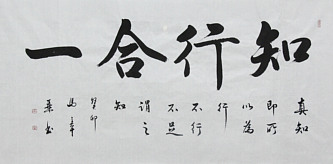 知行合一
真知
即所
以為
行
不行
不足
謂之
知
癸卯